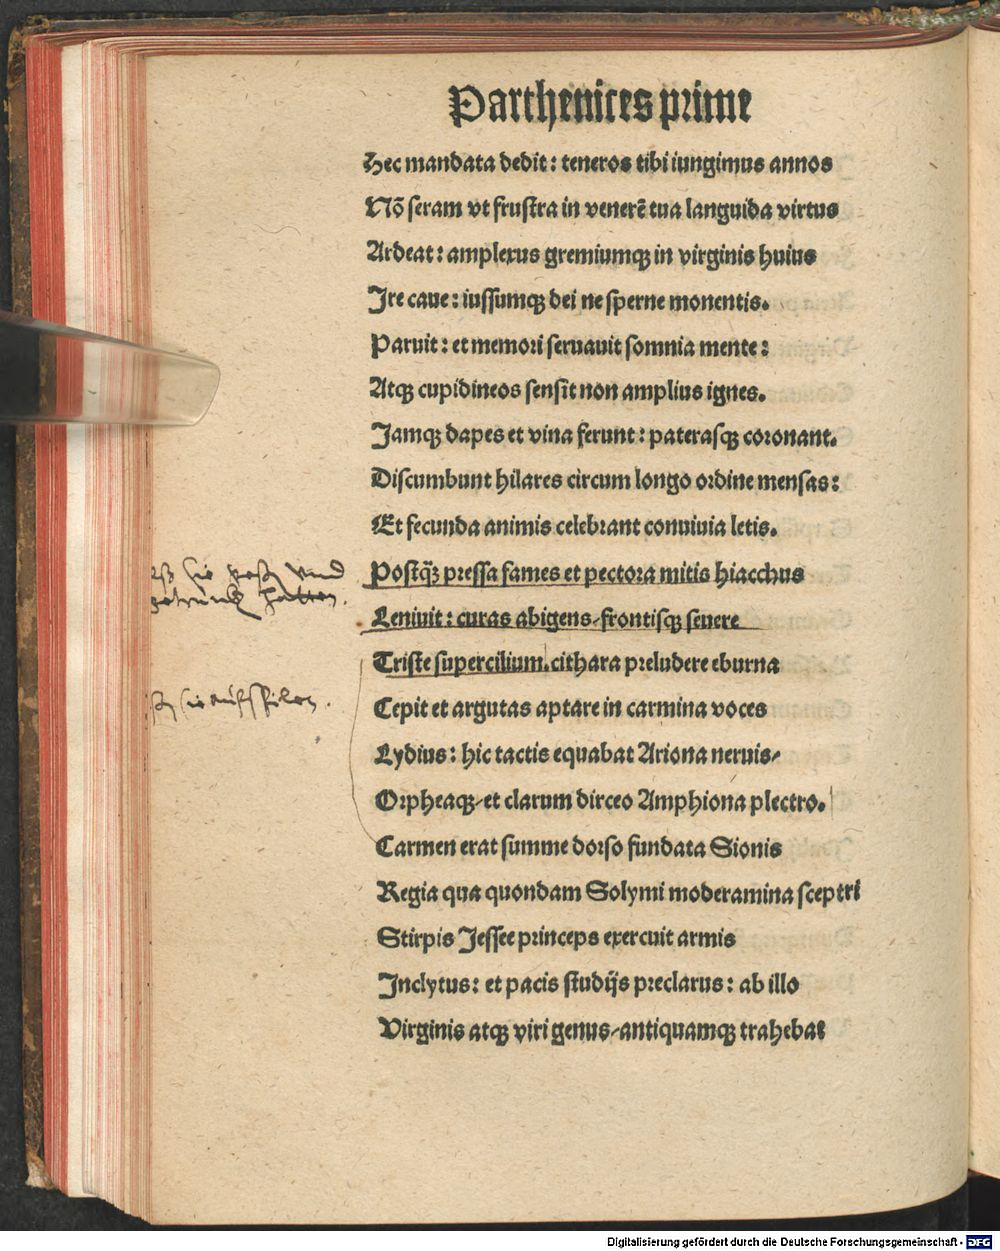 Parthenices prime
Hec mandata dedit: teneros tibi iungimus annos
Nõ seram vt frustra in venerẽ tua languida virtus
Ardeat: amplexus gremiumqꝫ in virginis huius
Ire caue: iussumqꝫ dei ne sperne monentis.
Paruit: et memori seruauit somnia mente:
Atqꝫ cupidineos sensit non amplius ignes.
Jamqꝫ dapes et vina ferunt: paterasqꝫ coronant.
Discumbunt hilares circum longo ordine mensas:
Et fecunda animis celebrant conuiuia letis.
Postq̃ꝫ pressa fames et pectora mitis hiacchus
Leniuit: curas abigens/ frontisqꝫ seuere
Triste supercilium. cithara preludere eburna
Cepit et argutas aptare in carmina voces
Lydius: hic tactis equabat Ariona neruis/
Orpheaqꝫ/ et clarum dirceo Amphiona plectro.
Carmen erat summe dorso fundata Sionis
Regia qua quondam Solymi moderamina sceptri
Stirpis Jessee princeps exercuit armis
Inclytus: et pacis studijs preclarus: ab illo
Virginis atqꝫ viri genus/ antiquamqꝫ trahebat
sie vnd
hatten.
sie
Digitalisierung gefördert durch die Deutsche Forschungsgemeinschaft - DFG